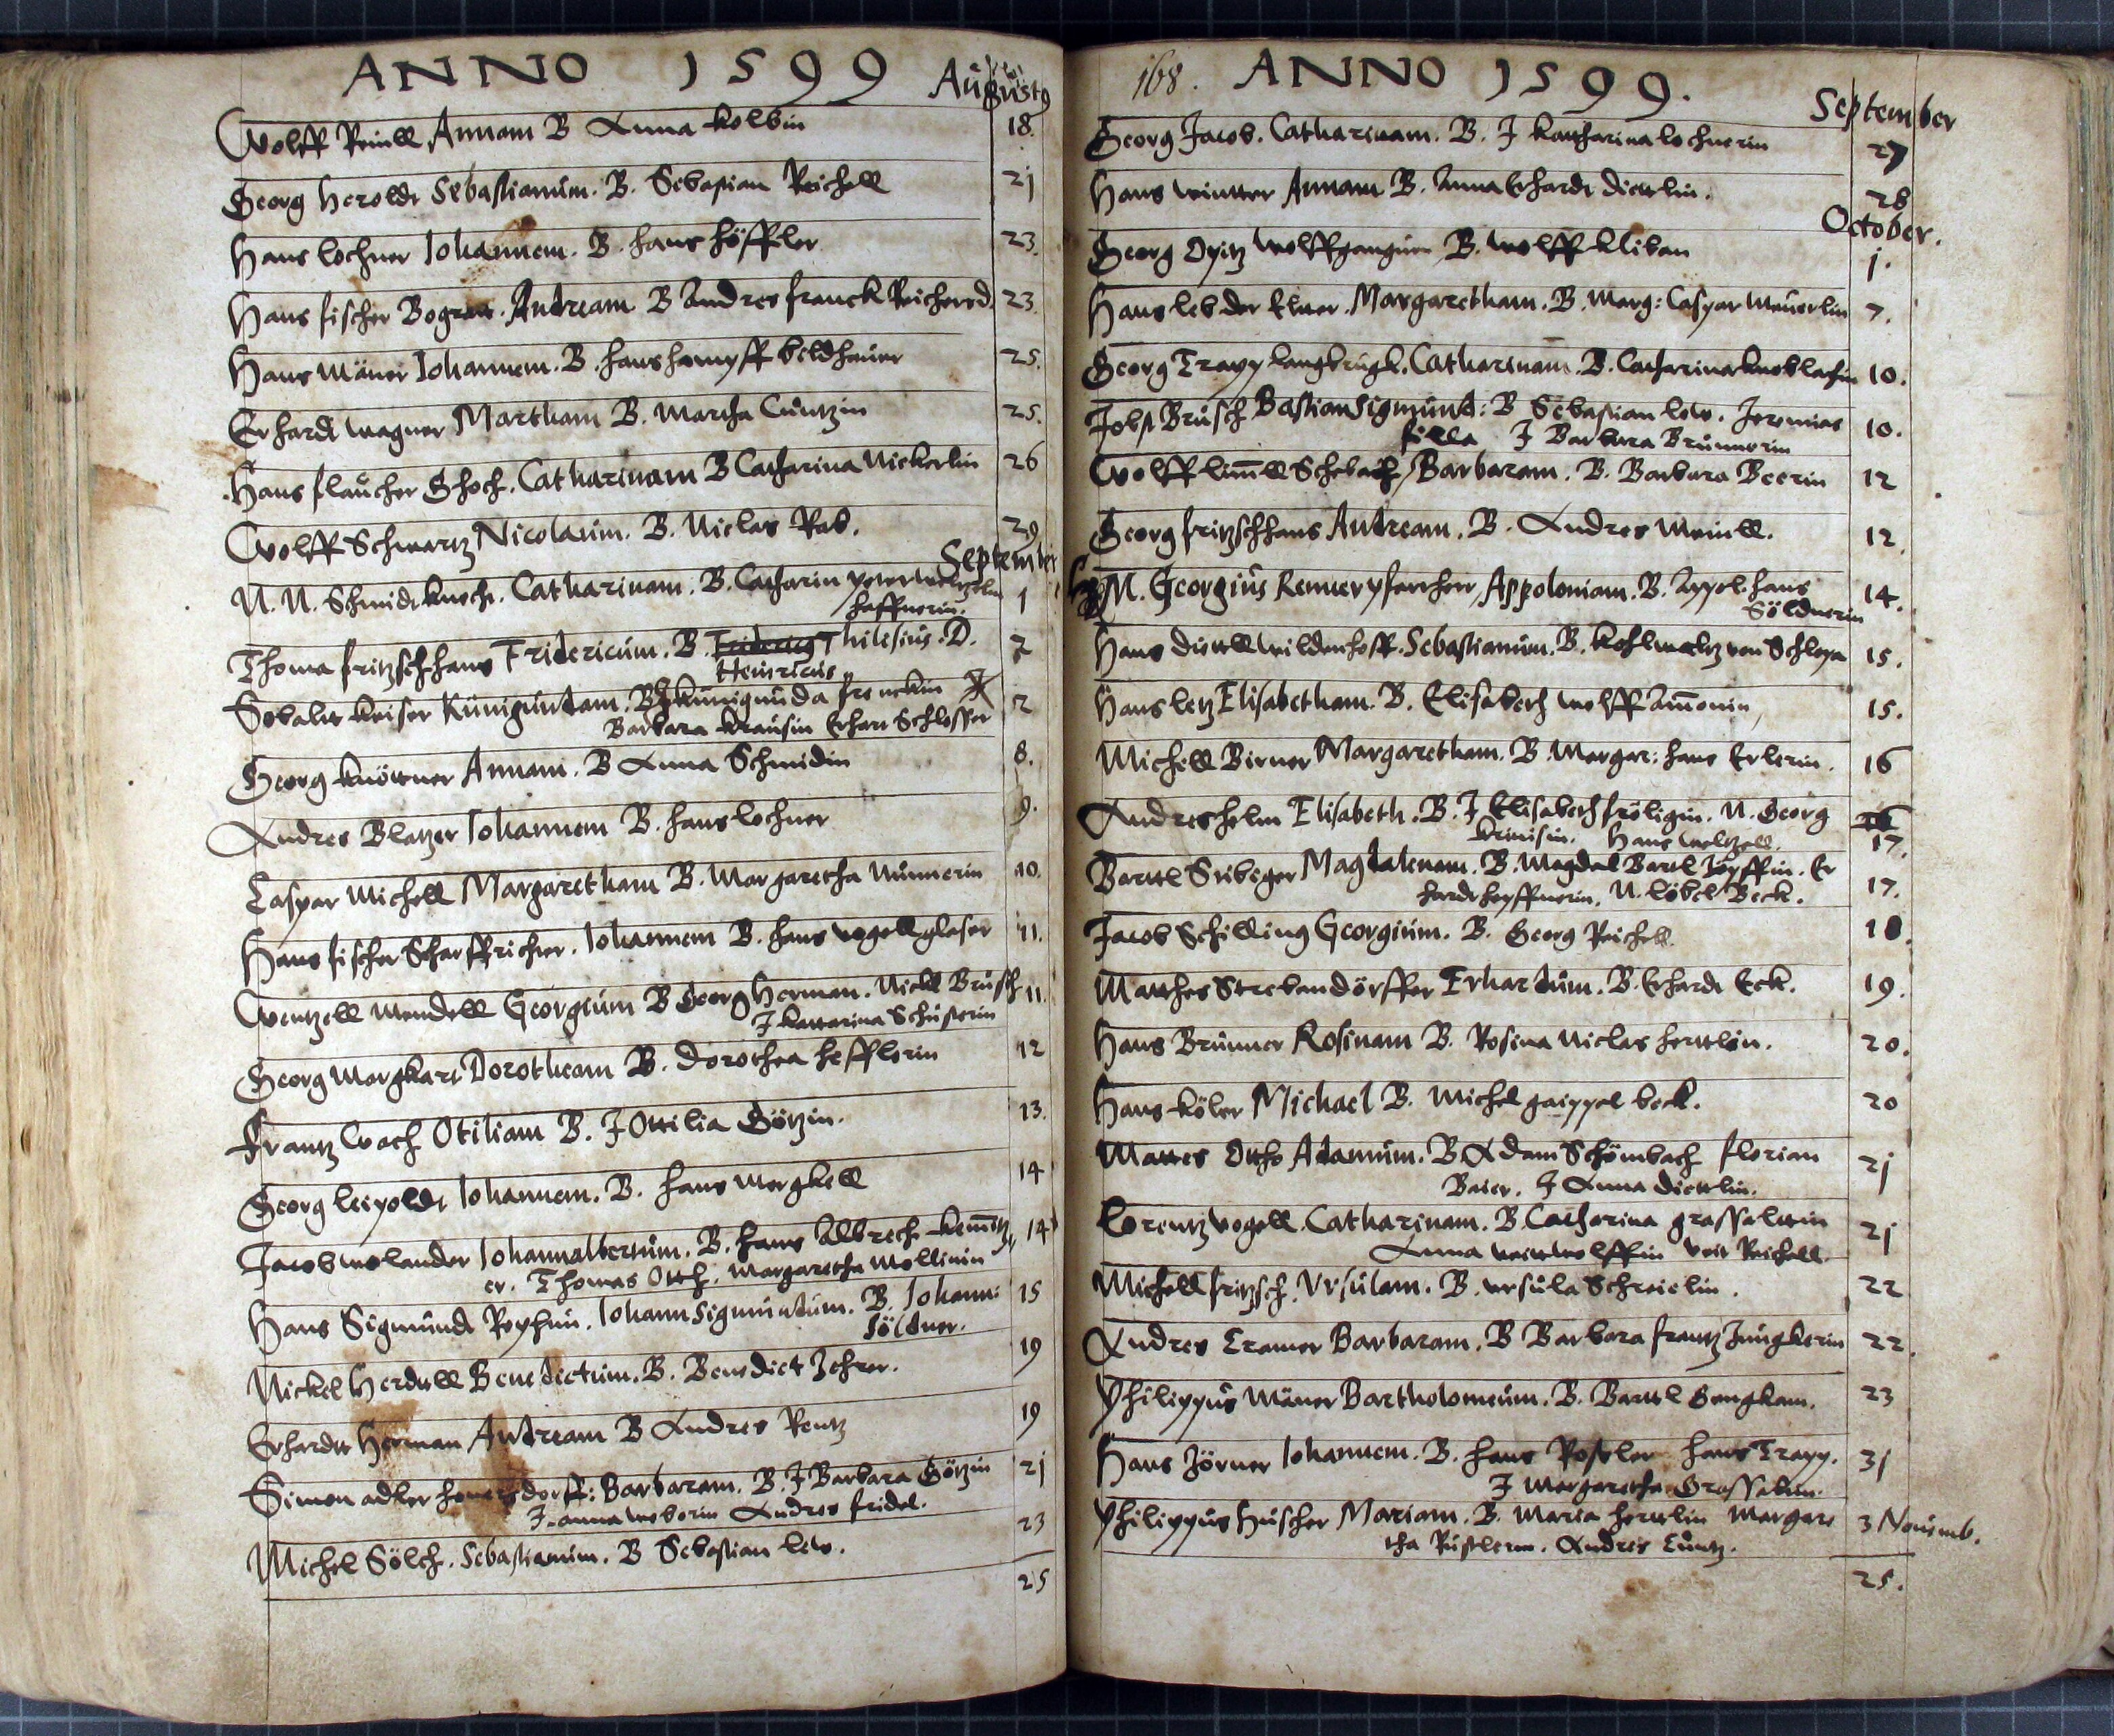 ANNO 1599 Augusty
Wolff Reinell Annam B Anna Kolbin 18.
Georg Heroldt Sebastianum. B. Sebastian Reichell 21
Hans Lochner Johannem. B. Hans Höffler 23.
Hans Fischer Andream B Andres Franck Reichersd. 23
Hans Mäner Johannem. B. Hans beldhauer 25.
Erhardt Wagner Martham B. Martha Cuntzin 25.
Hans Flaucher Catharinam B Catharina Nickerlin 26
Wolff Schwartz Nicolaum. B. Niclas Rab. 29
September
N. N. Schmidt knecht. Catharinam. B. Catharin peter 1
haffnerin.
Thoma Fritzschhans Fridericum. B. Fridericus Thilesius. D. 2
Heinricus
Sebalt Keiser Kunigundam. B. Kunigunda Frenckin 2
Barbara Krausin Erhart Schlosser
Georg Knöttner Annam. B Anna Schmidin 8.
Andres Blatzer Johannem B. Hans Lochner 9.
Caspar Michell Margaretham B. Margaretha Nünnerin 10.
Hans Fischer Scharffrichter. Johannem B. Hans Vogell glaser 11.
Wentzell Mendell Georgium B Georg Herman. Nickl Brüsch 11
J Kattarina Schusterin
Georg Margkart Dorotheam B. Dorothea Hefflerin 12
Frantz Wach Otiliam B. J Ottilia Götzin. 13.
Georg Leipoldt Johannem. B. Hans Morgkell 14
Jacob Molander Johannalbertum. B. Hans Albrech 14
er. Thomas Otth. Margaretha Mollinin
Hans Sigmundt Johann Sigmundum. B. Johann: 15
Söldner.
Nickel Herdell Benedictum. B. Benedict Zehrer. 19
Erhardt Herman Andream B Andres Rentz 19
Simon Adler Barbaram. B. J Barbara Götzin 21
J. Anna Weberin Andres Fridel. 23
Michel Sölch. Sebastianum. B Sebastian Lew.
25
168. ANNO 1599.
September
Georg Jacob. Catharinam. B. J Kattharina Lochnerin 27
Hans Winter Annam B. Anna Erhardt Diettlin. 28
October.
Georg Opitz Wolffgangum B. Wolff Kliban 1.
Hans Leb der Elter. Margaretham. B. Marg: Caspar Meuerlin 7.
Georg Trapp Catharinam. B. Catharina Knoblachin 10.
Jobst Brüsch Bastian Sigmund: B Sebastian Lew. Jeremias 10.
J Barbara Brunnerin
Wolff Barbaram. B. Barbara Beerin 12
Georg Fritzschhans Andream. B. Andres Meinell. 12.
M. Georgius Renner pfarrherr, Appoloniam. B. Appol. Hans 14.
Söldnerin
Hans Düttell Wildenhoff. Sebastianum. B. von Schlopa 15.
Hans Letz Elisabetham. B. Elisabeth Wolff Ammonin 15.
Michell Birner Margaretham. B. Margar: Hans Erlerin. 16
Andres Helm Elisabeth. B. J Elisabeth Fröligin. N. Georg
Hans Weltzell. 17.
Barttl Magdalenam. B. Magdal Bartl Er
hardt N. Löbel Beck. 17.
Jacob Schilling Georgium. B. Georg Reichell. 18.
Matthes Strebandörffer Erhardum. B. Erhardt Eck. 19.
Hans Brunner Rosinam B. Rosina Niclas Herttlin. 20.
Hans Köler Michael B. Michel Gaippel beck. 20
Mattes Otto Adamum. B Adam Schömbach Florian 21
Baier. J Anna Diettlin.
Lorentz Vogell. Catharinam. B. Catharina 21
Anna Wolffin Veit Reichell.
Michell Fritzsch. Ursulam. B. Ursula Schreielin. 22
Andres Cramer Barbaram. B Barbara Frantz Jungkerin 22.
Philippus Mäner Bartholomeum. B. Barttl Gengkam. 23
Hans Zörner Johannem. B. Hans Rossler Hans Trapp. 31
J Margaretha
Philippus Huscher Mariam. B. Maria Herttlin Margare 3 Novemb.
tha Rüstlerin. Andres Cuntz.
25.